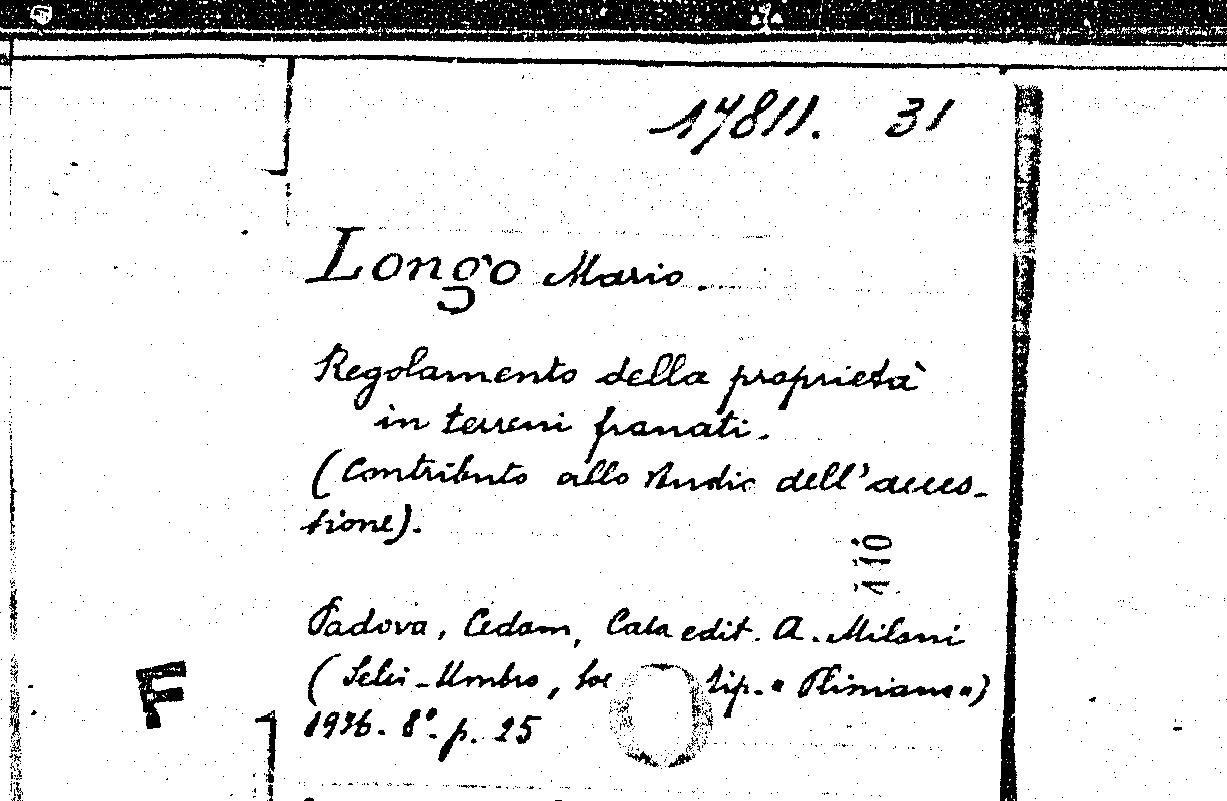 17811. 31
Longo Mario.
Regolamento della proprietà
in terreni franati.
(Contributo allo studio dell'acces-
sione).
110
Padova, Cedam, Casa edit. A. Milani
(Selci-Umbro, Soc tip. "Pliniana")
1936. 8º. p. 25
F